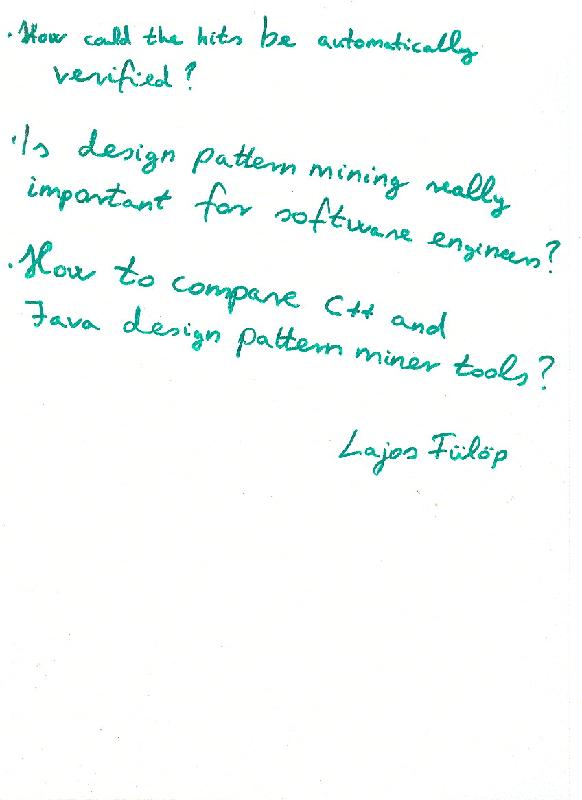 · How could the hits be automatically
verified?
· Is design pattern mining really
important for software engineers?
· How to compare C++ and
Java design pattern miner tools?
Lajos Fülöp